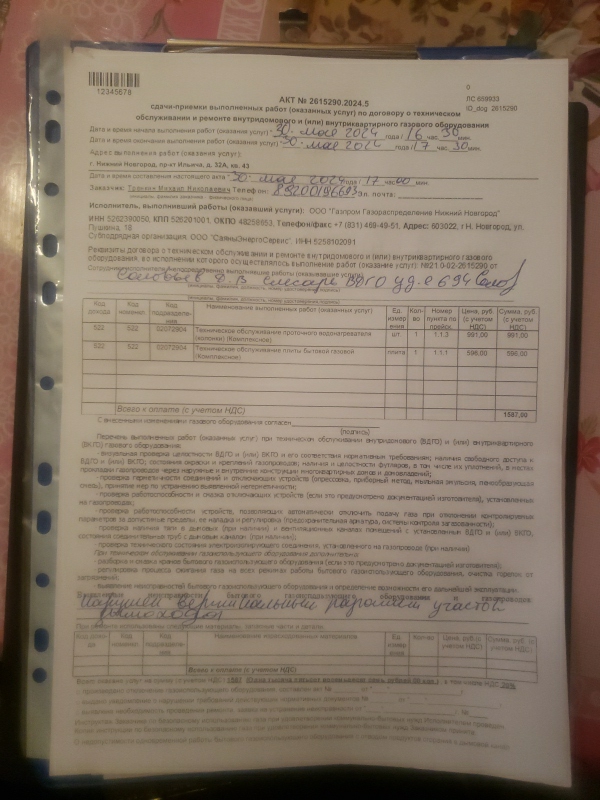 0
ЛС 659933
ID_dog 2615290
12345678
АКТ № 2615290.2024.5
сдачи-приемки выполненных работ (оказанных услуг) по договору о техническом
обслуживании и ремонте внутридомового и (или) внутриквартирного газового оборудования
Дата и время начала выполнения работ (оказания услуг) "30" мая 2024 года / 16 час. 30 мин.
Дата и время окончания выполнения работ (оказания услуг) "30" мая 2024 года / 17 час. 30 мин.
Адрес выполнения работ (оказания услуг):
г. Нижний Новгород, пр-кт Ильича, д. 32А, кв. 43
Дата и время составления настоящего акта "30" мая 2024 года / 17 час 00 мин.
Заказчик: Михаил Николаевич Телефон: Эл. почта:
Исполнитель, выполнивший работы (оказавший услуги): ООО "Газпром Газораспределение Нижний Новгород"
ИНН 5262390050, КПП 526201001, ОКПО 48256853, Телефон/факс +7 (831) 469-49-61, Адрес: 603022, г.Н. Новгород, ул.
Пушкина, 18
Субподрядная организация, ООО "СаяныЭнергоСервис", ИНН 5258102091
Реквизиты договора о техническом обслуживании и ремонте внутридомового и (или) внутриквартирного газового
оборудования, во исполнении которого осуществлялось выполнение работ (оказание услуг): №21.0-02-2615290 от
Соловьев Д В слесарь ВДГО уд-е 694
Код дохода Код номенкл. Код подразделения Наименование выполненных работ (оказанных услуг) Ед. измерения Кол-во Номер пункта по прейск. Цена, руб. (с учетом НДС) Сумма, руб. (с учетом НДС)
522 522 52072904 Техническое обслуживание проточного водонагревателя (колонки) (Комплексное) шт. 1 1.1.3 991,00 991,00
522 522 52072904 Техническое обслуживание плиты бытовой газовой (Комплексное) плита 1 1.1.1 596,00 596,00
Всего к оплате (с учетом НДС) 1587,00
С внесенными изменениями газового оборудования согласен
(подпись)
Перечень выполненных работ (оказанных услуг) при техническом обслуживании внутридомового (ВДГО) и (или) внутриквартирного
(ВКГО) газового оборудования:
- визуальная проверка целостности ВДГО и (или) ВКГО и его соответствия нормативным требованиям; наличия свободного доступа к
ВДГО и (или) ВКГО; состояния окраски и креплений газопроводов; наличия и целостности футляров, в том числе их уплотнений, в местах
прокладки газопроводов через наружные и внутренние конструкции многоквартирных домов и домовладений;
- проверка герметичности соединений и отключающих устройств (опрессовка, приборный метод, мыльная эмульсия, пенообразующая
смесь), принятие мер по устранению выявленной негерметичности;
- проверка работоспособности и смазка отключающих устройств (если это предусмотрено документацией изготовителя), установленных
на газопроводах;
- проверка работоспособности устройств, позволяющих автоматически отключить подачу газа при отклонении контролируемых
параметров за допустимые пределы, ее наладка и регулировка (предохранительная арматура, системы контроля загазованности);
- проверка наличия тяги в дымовых (при наличии) и вентиляционных каналах помещений с установленным ВДГО и (или) ВКГО,
состояния соединения труб с дымовым каналом (при наличии);
- проверка технического состояния электроизолирующего соединения, установленного на газопроводе (при наличии)
При техническом обслуживании газоиспользующего оборудования дополнительно:
- разборка и смазка кранов бытового газоиспользующего оборудования (если это предусмотрено документацией изготовителя);
- регулировка процесса сжигания газа на всех режимах работы бытового газоиспользующего оборудования, очистка горелок от
загрязнений;
- выявление неисправностей бытового газоиспользующего оборудования и определение возможности его дальнейшей эксплуатации.
участок
дымохода
При ремонте использованы следующие материалы, запасные части и детали:
Код дохода Код номенкл. Код подразделения Наименования израсходованных материалов Ед. измерения Кол-во Цена, руб. (с учетом НДС) Сумма, руб. (с учетом НДС)
Всего к оплате (с учетом НДС)